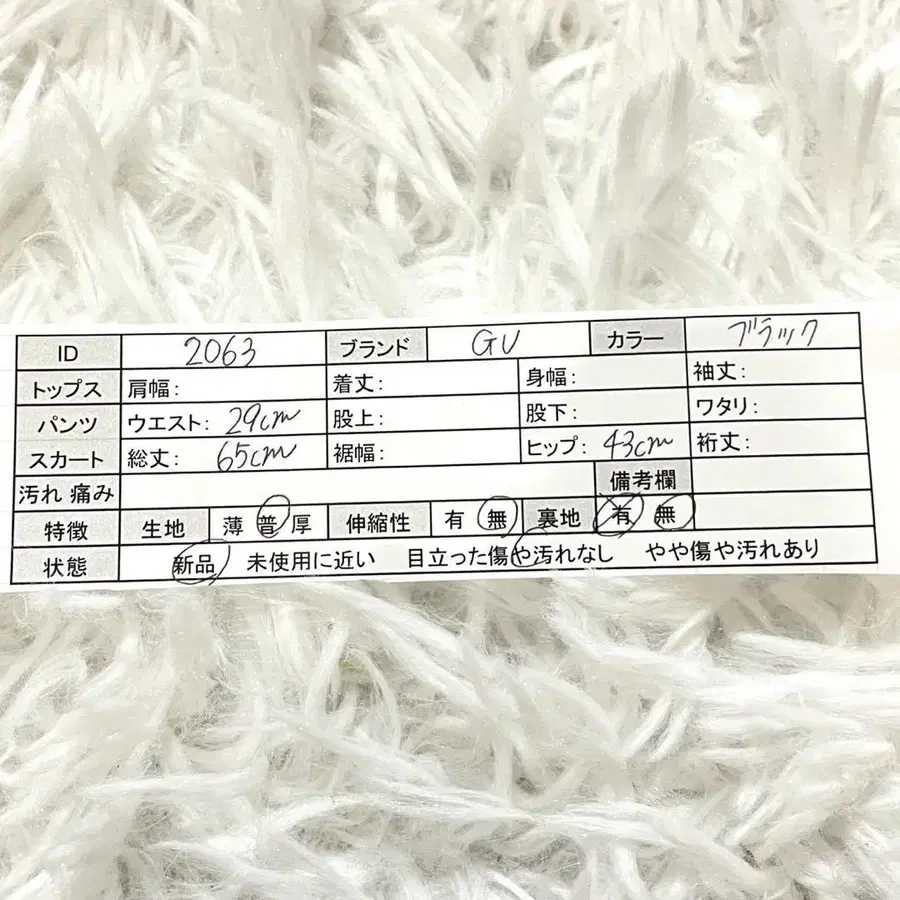 ID 2063 ブランド GU カラー ブラック
トップス 肩幅: 着丈: 身幅: 袖丈:
パンツ ウエスト: 29cm 股上: 股下: ワタリ:
スカート 総丈: 65cm 裾幅: ヒップ: 43cm 裄丈:
汚れ 痛み 備考欄
特徴 生地 薄 普 厚 伸縮性 有 無 裏地 有 無
状態 新品 未使用に近い 目立った傷や汚れなし やや傷や汚れあり